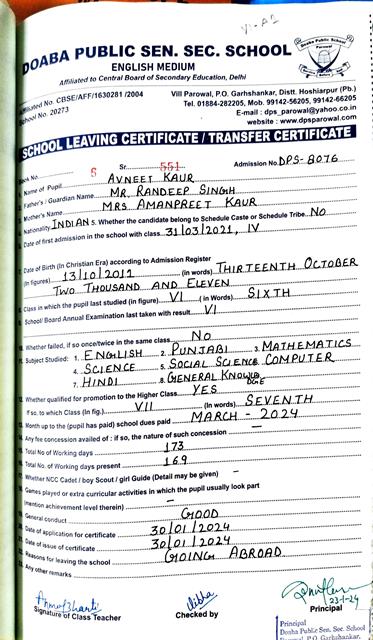 DOABA PUBLIC SEN. SEC. SCHOOL
ENGLISH MEDIUM
Affiliated to Central Board of Secondary Education, Delhi
Affiliated No. CBSE/AFF/1630281 /2004
School No. 20273
Vill Parowal, P.O. Garhshankar, Distt. Hoshiarpur (Pb.)
Tel. 01884-282205, Mob. 99142-56205, 99142-66205
E-mail : dps_parowal@yahoo.co.in
website : www.dpsparowal.com
SCHOOL LEAVING CERTIFICATE / TRANSFER CERTIFICATE
Book No. 6 Sr. 551 Admission No. DPS-8076
1. Name of Pupil AVNEET KAUR
2. Father's / Guardian Name MR. RANDEEP SINGH
3. Mother's Name MRS AMANPREET KAUR
4. Nationality INDIAN 5. Whether the candidate belong to Schedule Caste or Schedule Tribe. NO
6. Date of first admission in the school with class 31/03/2021, IV
7. Date of Birth (In Christian Era) according to Admission Register
(In figures) 13/10/2011 (in words) THIRTEENTH OCTOBER
TWO THOUSAND AND ELEVEN
8. Class in which the pupil last studied (in figure) VI ( in Words) SIXTH
9. School/ Board Annual Examination last taken with result VI
10. Whether failed, if so once/twice in the same class NO
11. Subject Studied: 1. ENGLISH 2. PUNJABI 3. MATHEMATICS
4. SCIENCE 5. SOCIAL SCIENCE COMPUTER
7. HINDI 8. GENERAL KNOWLEDGE
12. Whether qualified for promotion to the Higher Class YES
If so, to which Class (in fig.) VII (In words) SEVENTH
13. Month up to the (pupil has paid) school dues paid MARCH - 2024
14. Any fee concession availed of : if so, the nature of such concession —
15. Total No of Working days 173
16. Total No. of Working days present 169
17. Whether NCC Cadet / boy Scout / girl Guide (Detail may be given) —
18. Games played or extra curricular activities in which the pupil usually look part
(mention achievement level therein) —
19. General conduct GOOD
20. Date of application for certificate 30/01/2024
21. Date of issue of certificate 30/01/2024
22. Reasons for leaving the school GOING ABROAD
23. Any other remarks
Signature of Class Teacher
Checked by
23-1-24
Principal
Principal
Doaba Public Sen. Sec. School
Parowal, P.O. Garhshankar,